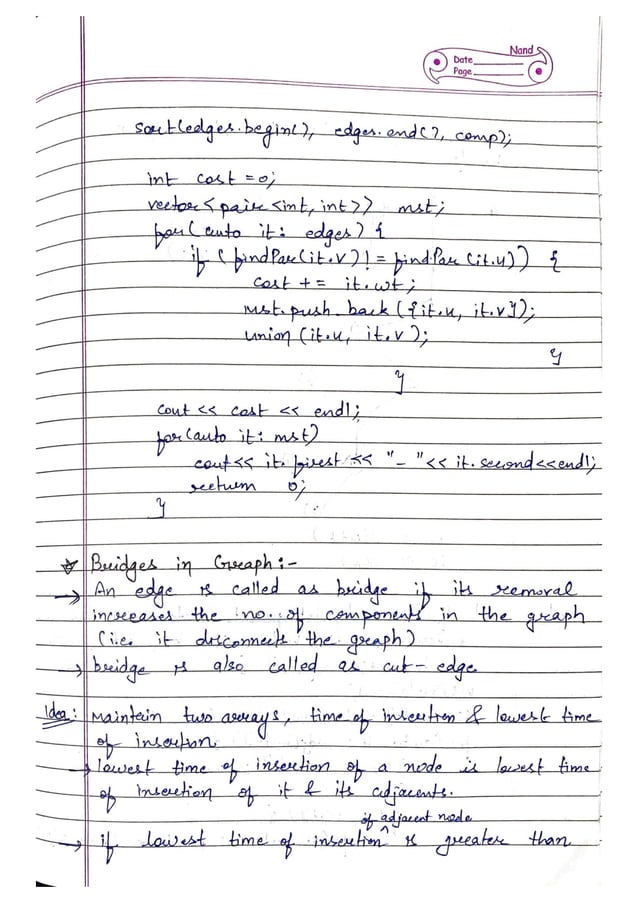 Nand
Date
Page
sort(edges.begin(), edges.end(), comp);
int cost = 0;
vector<pair<int, int>> mst;
for(auto it: edges) {
if (findPar(it.v) != findPar(it.u)) {
cost += it.wt;
mst.push_back({it.u, it.v});
union(it.u, it.v);
}
}
cout << cost << endl;
for(auto it: mst)
cout << it.first << "-" << it.second << endl;
return 0;
}
☆ Bridges in Graph:-
→ An edge is called as bridge if its removal
increases the no. of components in the graph
(i.e. it disconnects the graph)
→ bridge is also called as cut-edge.
Idea: Maintain two arrays, time of insertion & lowest time
of insertion.
→ lowest time of insertion of a node is lowest time
of insertion of it & its adjacents.
of adjacent node
→ if lowest time of insertion ^ is greater than